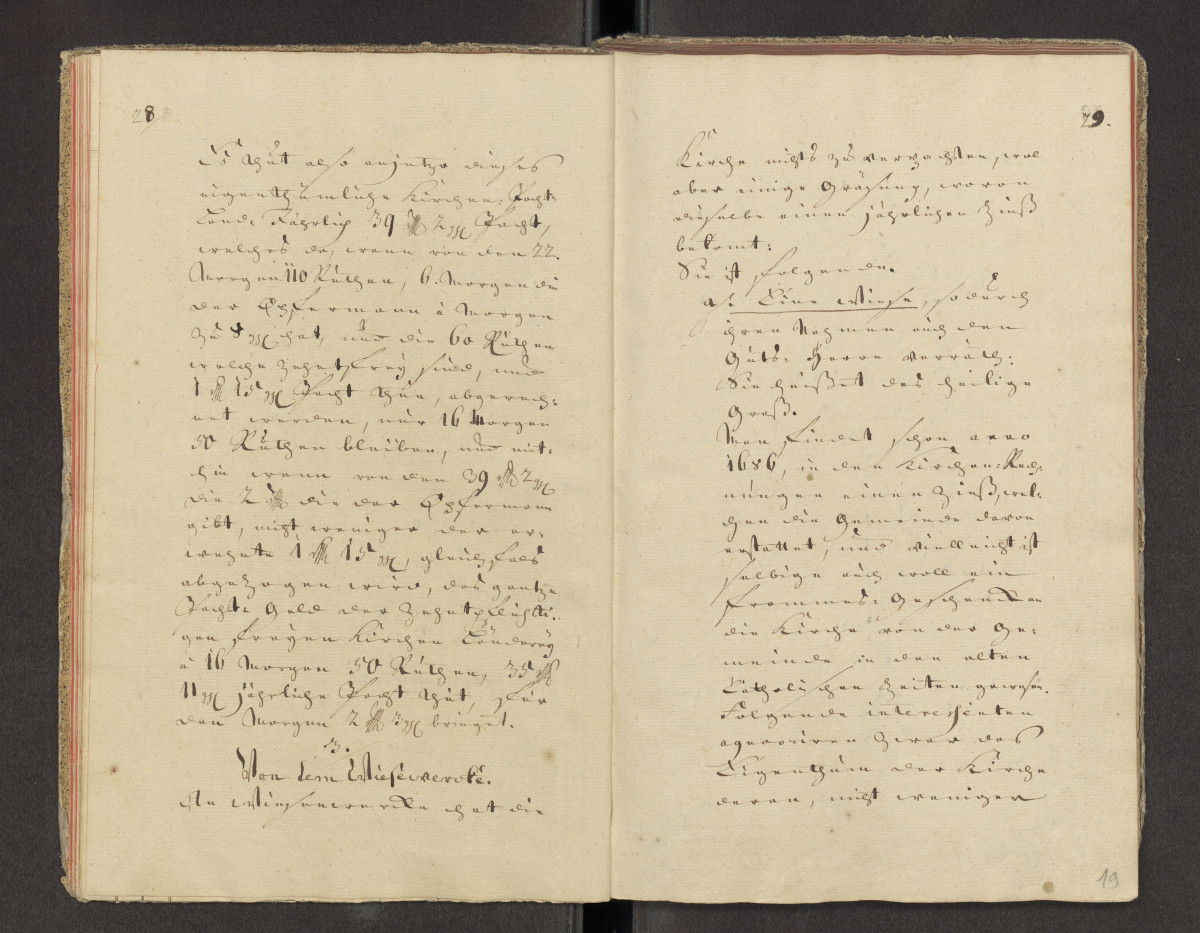 28
Es thut also anjetzo dieses
eigenthümliche Kirchen-Pacht-
Land, Jährlich 39 rthl 2 ggl Pacht,
welches da, wenn von den 22.
Morgen 110 Ruthen, 6. Morgen die
der Opfermann à Morgen
zu 8 ggl. hat, und die 60 Ruthen
welche Zehntfrey sind, und
1 rthl 15 ggl Pacht thun, abgerech-
net werden, nur 16 Morgen
50 Ruthen bleiben, und mit-
hin wenn von den 39 rthl 2 ggl
die 2 rthl die der Opfermann
gibt, nicht weniger der er-
wehnte 1 rthl 15 ggl, gleichfals
abgezogen wird, das gantze
Pacht-Geld der Zehntpflichti-
gen freyen Kirchen Länderey
à 16 Morgen 50 Ruthen, 35 rthl
11 ggl jährliche Pacht thut, für
den Morgen 2 rthl 3 ggl bringet.
3.
Von dem Wiesewercke.
An Wiesenwercke hat die
29.
Kirche nichts zu verpachten, wol
aber einige Grasung, wovon
dieselbe einen jährlichen Zinß
bekomt:
Sie ist folgende.
a/. Eine Wiese, so durch
ihren Nahmen auch den
Guts-Herrn verräth:
Sie heißet das heilige
Graß.
Man findet schon anno
1686, in den Kirchen-Rech-
nungen einen Zinß, wel-
chen die Gemeinde davon
erstattet, und vielleicht ist
selbige auch woll ein
frommes Geschenck an
die Kirche von der Ge-
meinde in den alten
Catholischen Zeiten gewesen.
Folgende interessenten
agnosciren zwar das
Eigenthum der Kirche
daran, nicht weniger
19